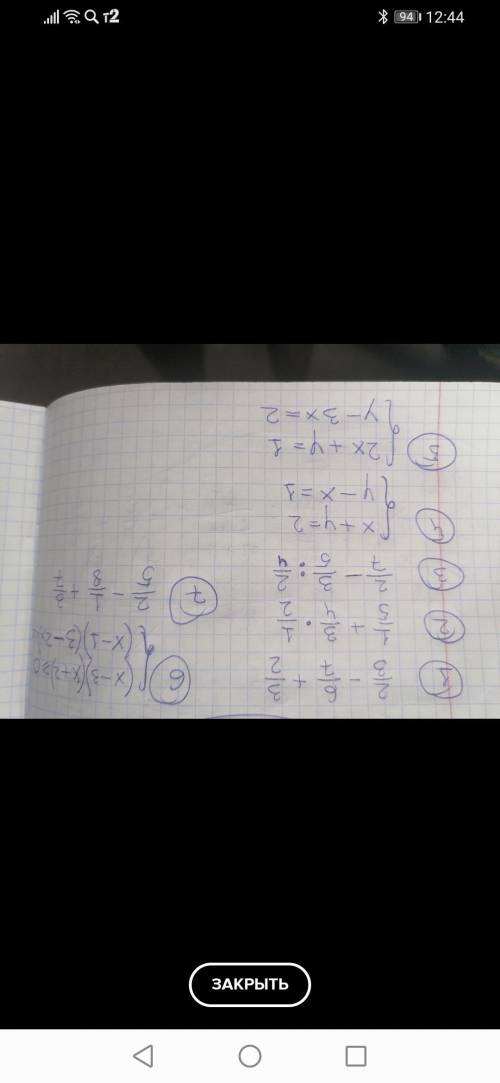 T2 94 12:44
1 2/3 - 6/7 + 3/2
2 1/5 + 3/4 · 1/2
3 2/7 - 3/5 : 2/4
4 { x + y = 2
y - x = 1
5 { 2x + y = 1
y - 3x = 2
6 { (x-3)(x+2)≥0
(x-1)(3-2x)
7 2/5 - 1/8 +
ЗАКРЫТЬ